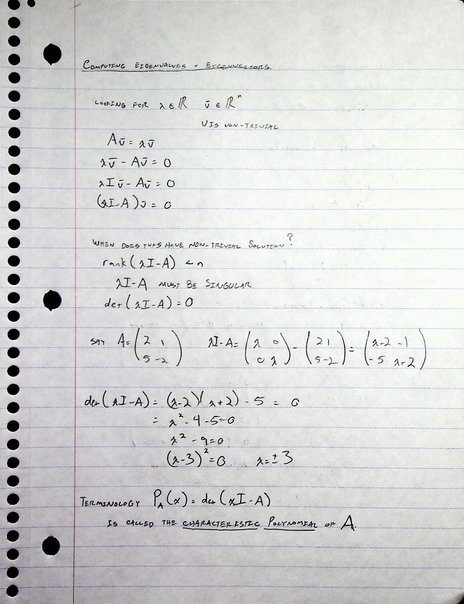 COMPUTING EIGENVALUES + EIGENVECTORS
LOOKING FOR λ∈ℝ v̄∈ℝⁿ
V IS NON-TRIVIAL
Av̄ = λv̄
λv̄ - Av̄ = 0
λIv̄ - Av̄ = 0
(λI-A)v̄ = 0
WHEN DOES THIS HAVE NON-TRIVIAL SOLUTION?
rank(λI-A) < n
λI-A MUST BE SINGULAR
det(λI-A)=0
SAY A=(2 1; 5 -2) λI-A=(λ 0; 0 λ)-(2 1; 5 -2)=(λ-2 -1; -5 λ+2)
det(λI-A) = (λ-2)(λ+2) - 5 = 0
= λ²-4-5=0
λ²-9=0
(λ-3)²=0 λ=±3
TERMINOLOGY P_A(x) = det(xI-A)
IS CALLED THE CHARACTERISTIC POLYNOMIAL OF A.